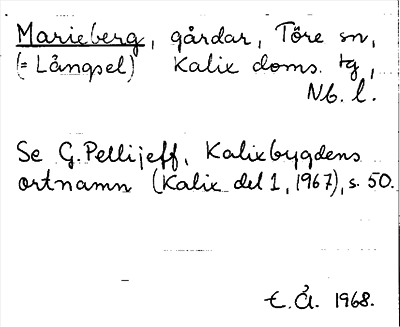 Marieberg, gårdar, Töre sn,
(= Långsel) Kalix doms. tg,
Nb. l.
Se G. Pellijeff, Kalixbygdens
ortnamn (Kalix del 1, 1967), s. 50.
E. Å. 1968.